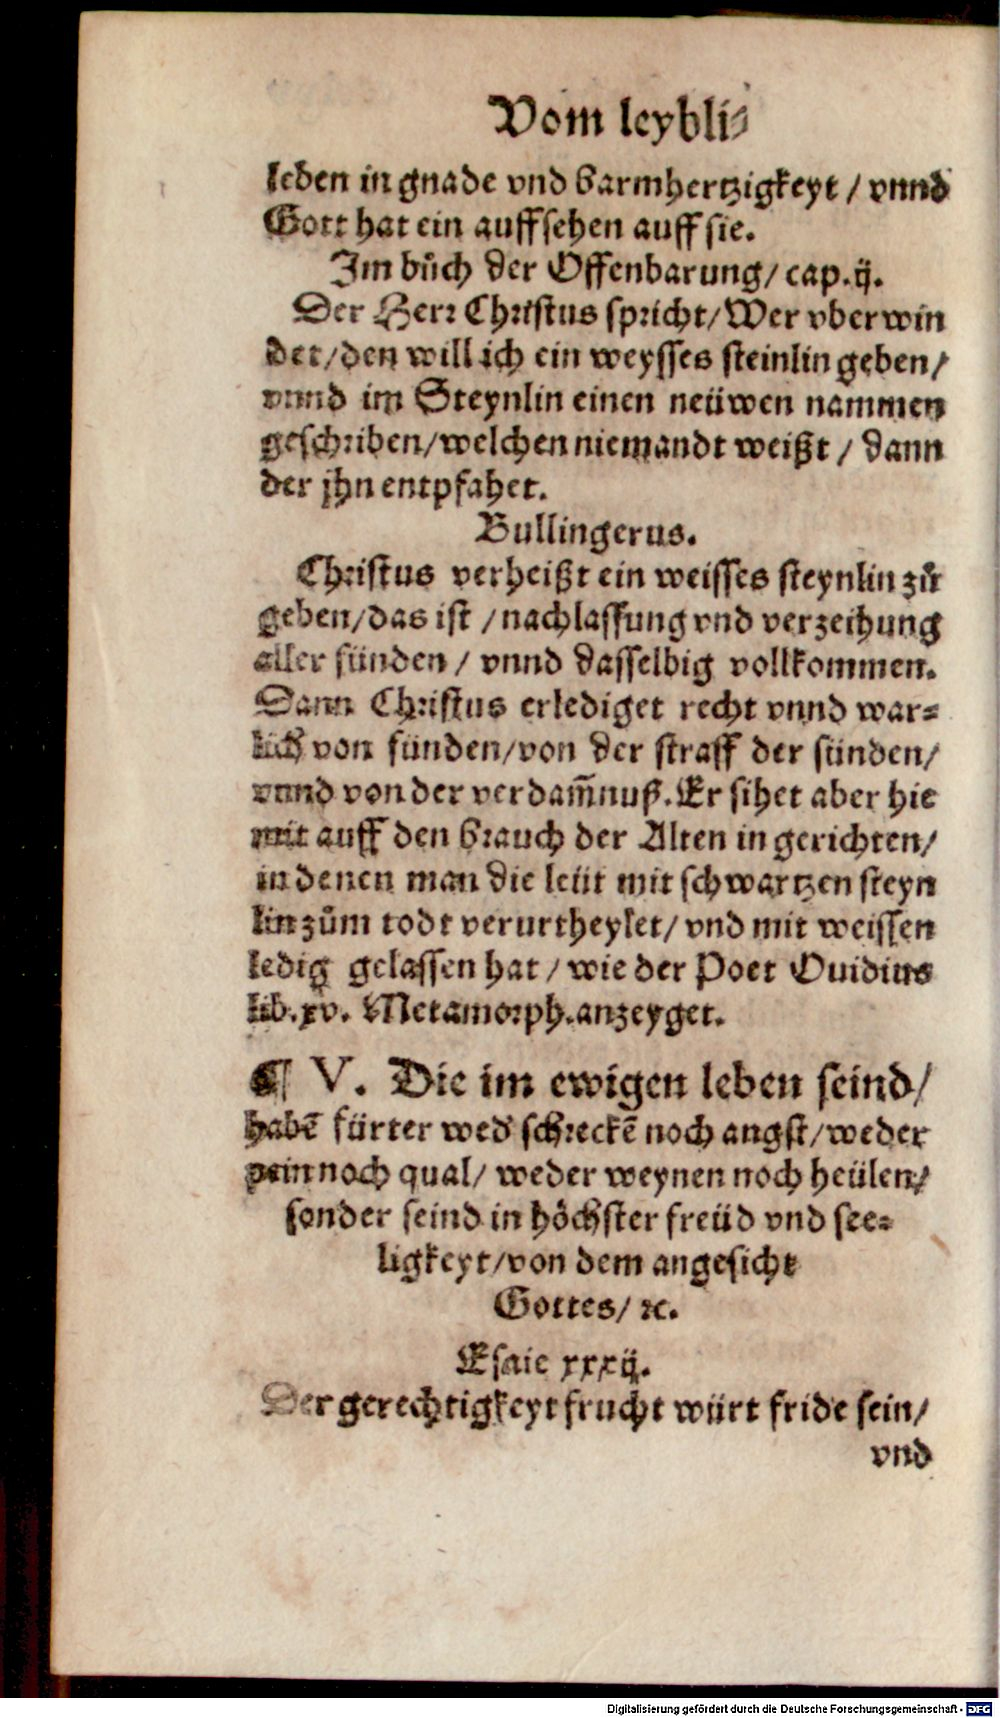 Vom leybli⸗
leben in gnade vnd barmhertzigkeyt / vnnd
Gott hat ein auffsehen auff sie.
Im bůch der Offenbarung/ cap.ij.
Der Herr Christus spricht/Wer vberwin
det/den will ich ein weysses steinlin geben/
vnnd im Steynlin einen neüwen nammen
geschriben/welchen niemandt weißt / dann
der jhn entpfahet.
Bullingerus.
Christus verheißt ein weisses steynlin zů
geben/das ist / nachlassung vnd verzeihung
aller sünden / vnnd dasselbig vollkommen.
Dann Christus erlediget recht vnnd war⸗
lich von sünden/von der straff der sünden/
vnnd von der verdam̃nuß. Er sihet aber hie
mit auff den brauch der Alten in gerichten/
in denen man die leüt mit schwartzen steyn
lin zům todt verurtheylet/ vnd mit weissen
ledig gelassen hat / wie der Poet Ouidius
lib.xv. Metamorph.anzeyget.
¶ V. Die im ewigen leben seind/
habẽ fürter wed' schreckẽ noch angst/weder
pein noch qual/ weder weynen noch heülen/
sonder seind in höchster freüd vnd see⸗
ligkeyt/von dem angesicht
Gottes/ ꝛc.
Esaie xxxij.
Der gerechtigkeyt frucht würt fride sein/
vnd
Digitalisierung gefördert durch die Deutsche Forschungsgemeinschaft - DFG